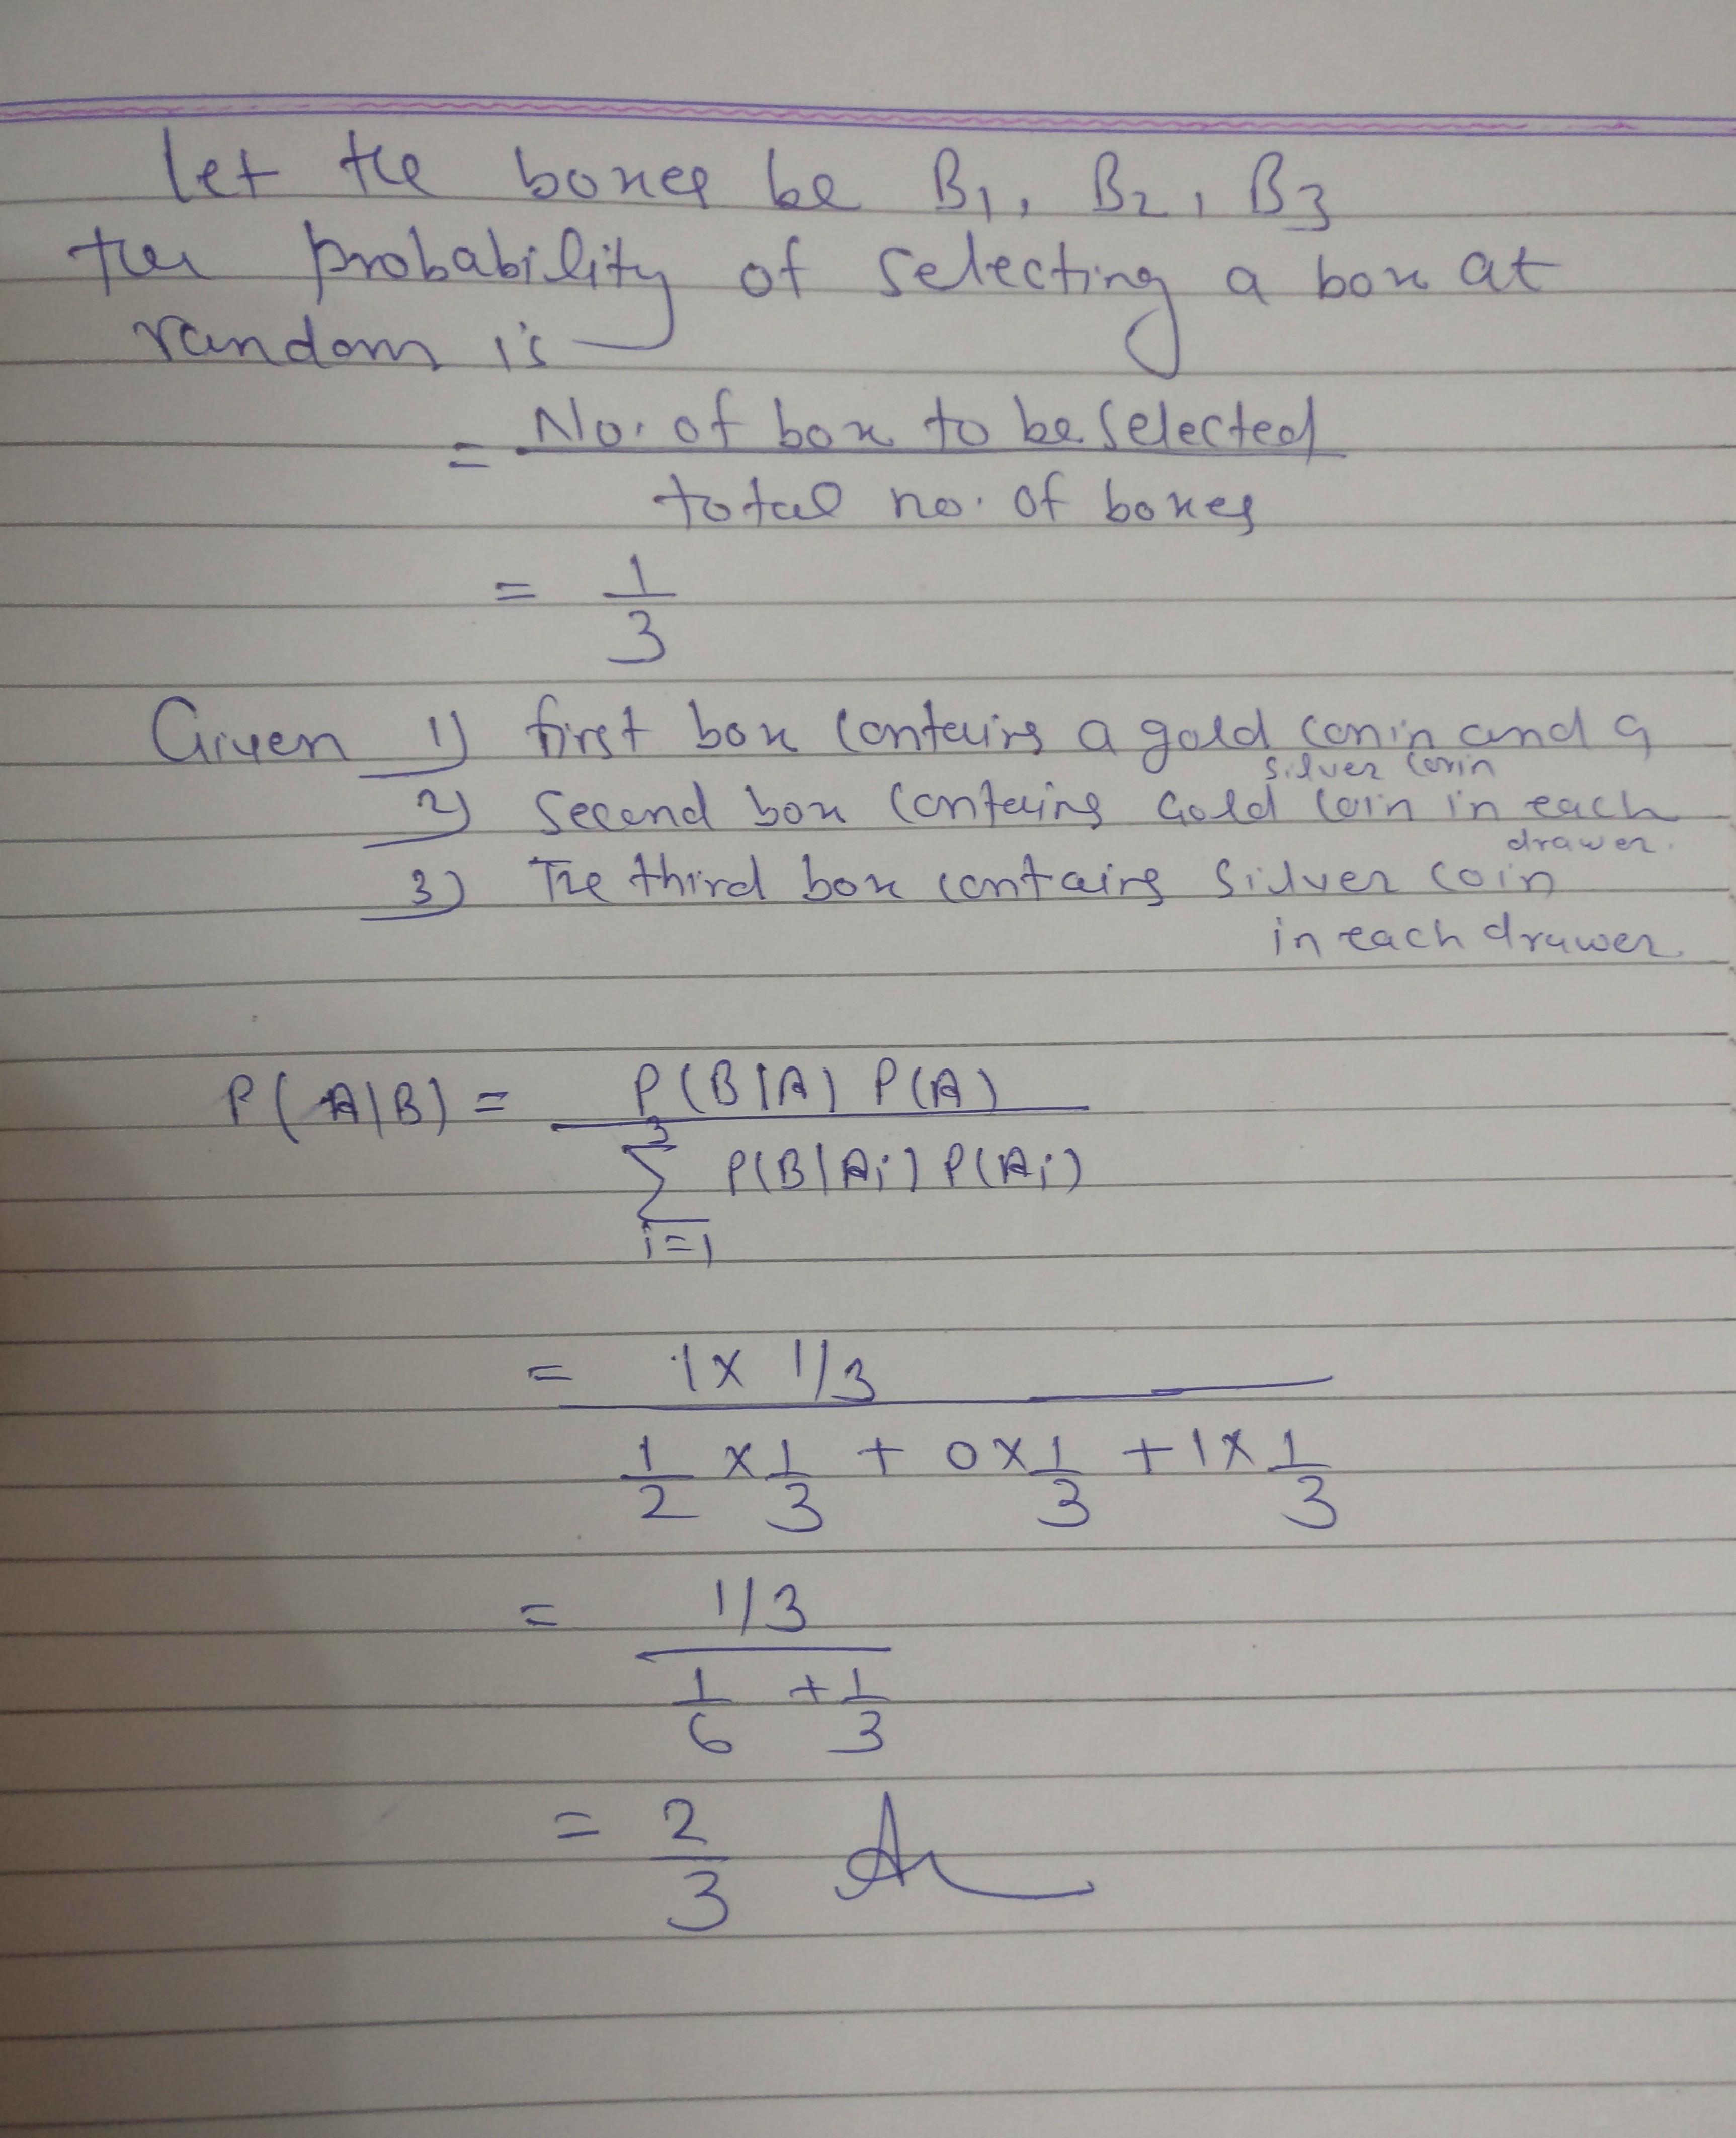 Let the boxes be B1, B2, B3
the probability of selecting a box at
random is
= No. of box to be selected
total no. of boxes
= 1
3
Given 1) first box contains a gold conin and a
silver conin
2) Second box contains Gold coin in each
drawer.
3) The third box contains Silver coin
in each drawer.
P(A|B) = P(B|A) P(A)
3
∑ P(B|Ai) P(Ai)
i=1
= 1 x 1/3
1/2 x 1/3 + 0 x 1/3 + 1 x 1/3
= 1/3
1/6 + 1/3
= 2
3